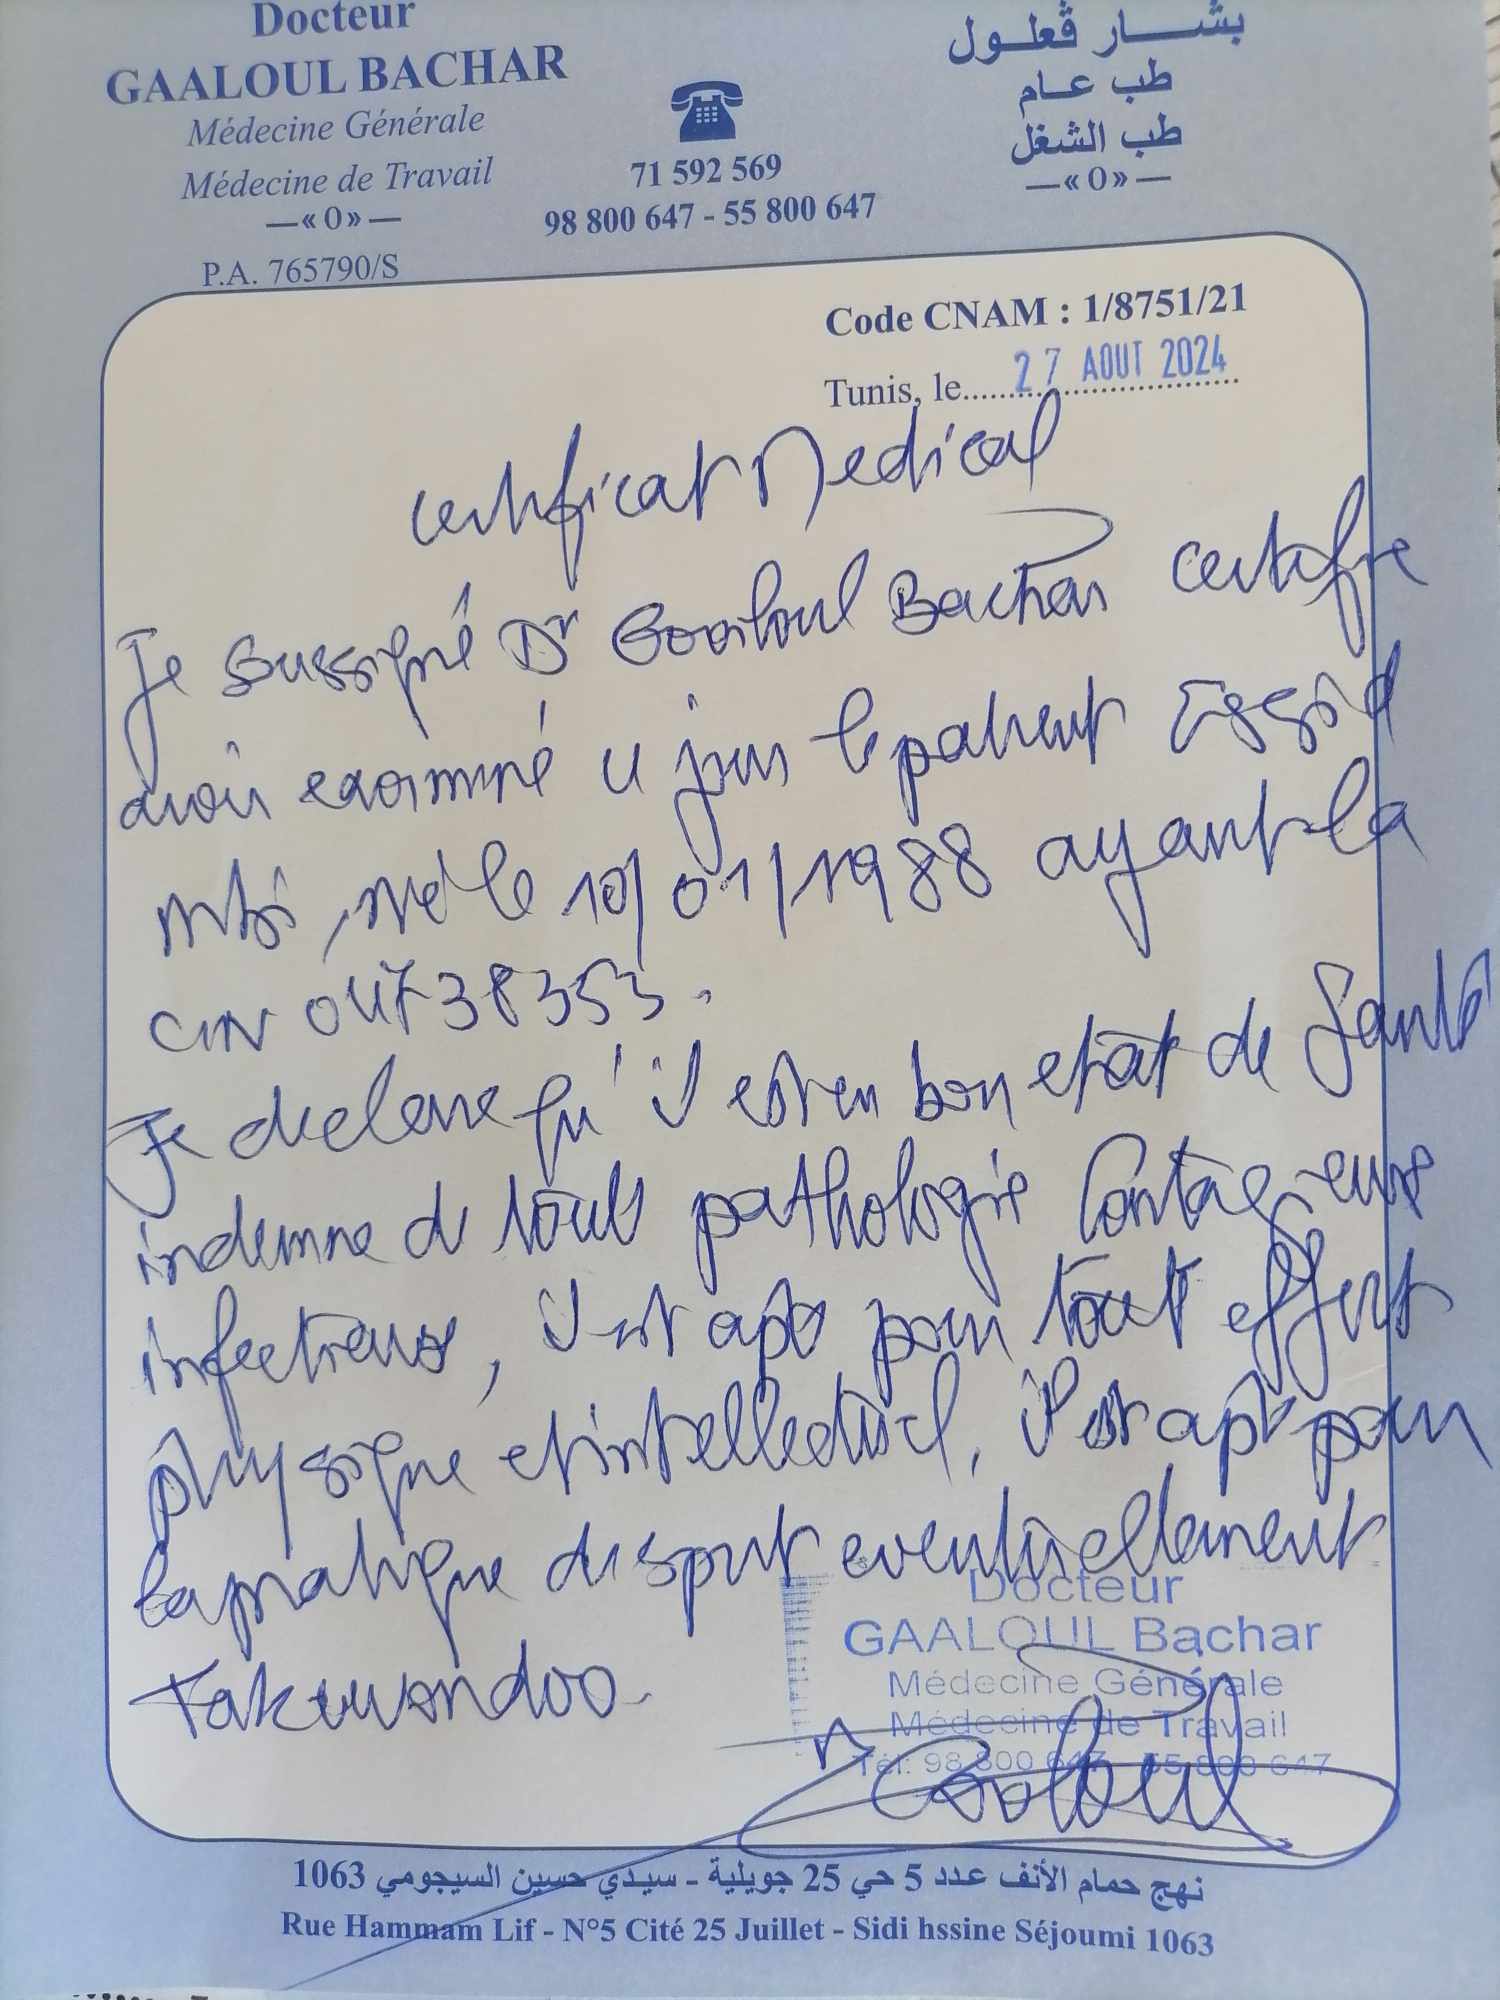 Docteur
GAALOUL BACHAR
Médecine Générale
Médecine de Travail
—« O» —
P.A. 765790/S
71 592 569
98 800 647 - 55 800 647
بشــــار ڤعلــول
طب عــام
طب الشغل
—« O» —
Code CNAM : 1/8751/21
Tunis, le 27 AOUT 2024
Certificat Medical
Je sussigné Dr Gaaloul Bachar certifie
avoir examiné ce jour le patient Essid
né le 10/01/1988 ayant la
CIN 04738353.
Je declare qu'il est en bon etat de Santé
indemne de toute pathologie Contagieuse
infectieuse, il est apte pour tout effort
physique et intellectuel, il est apte pour
la pratique du sport eventuellement
Takewondoo
Docteur
GAALOUL Bachar
Médecine Générale
Médecine de Travail
Tél: 98 800 647 - 55 800 647
Gaaloul
نهج حمام الأنف عدد 5 حي 25 جويلية - سيدي حسين السيجومي 1063
Rue Hammam Lif - N°5 Cité 25 Juillet - Sidi hssine Séjoumi 1063